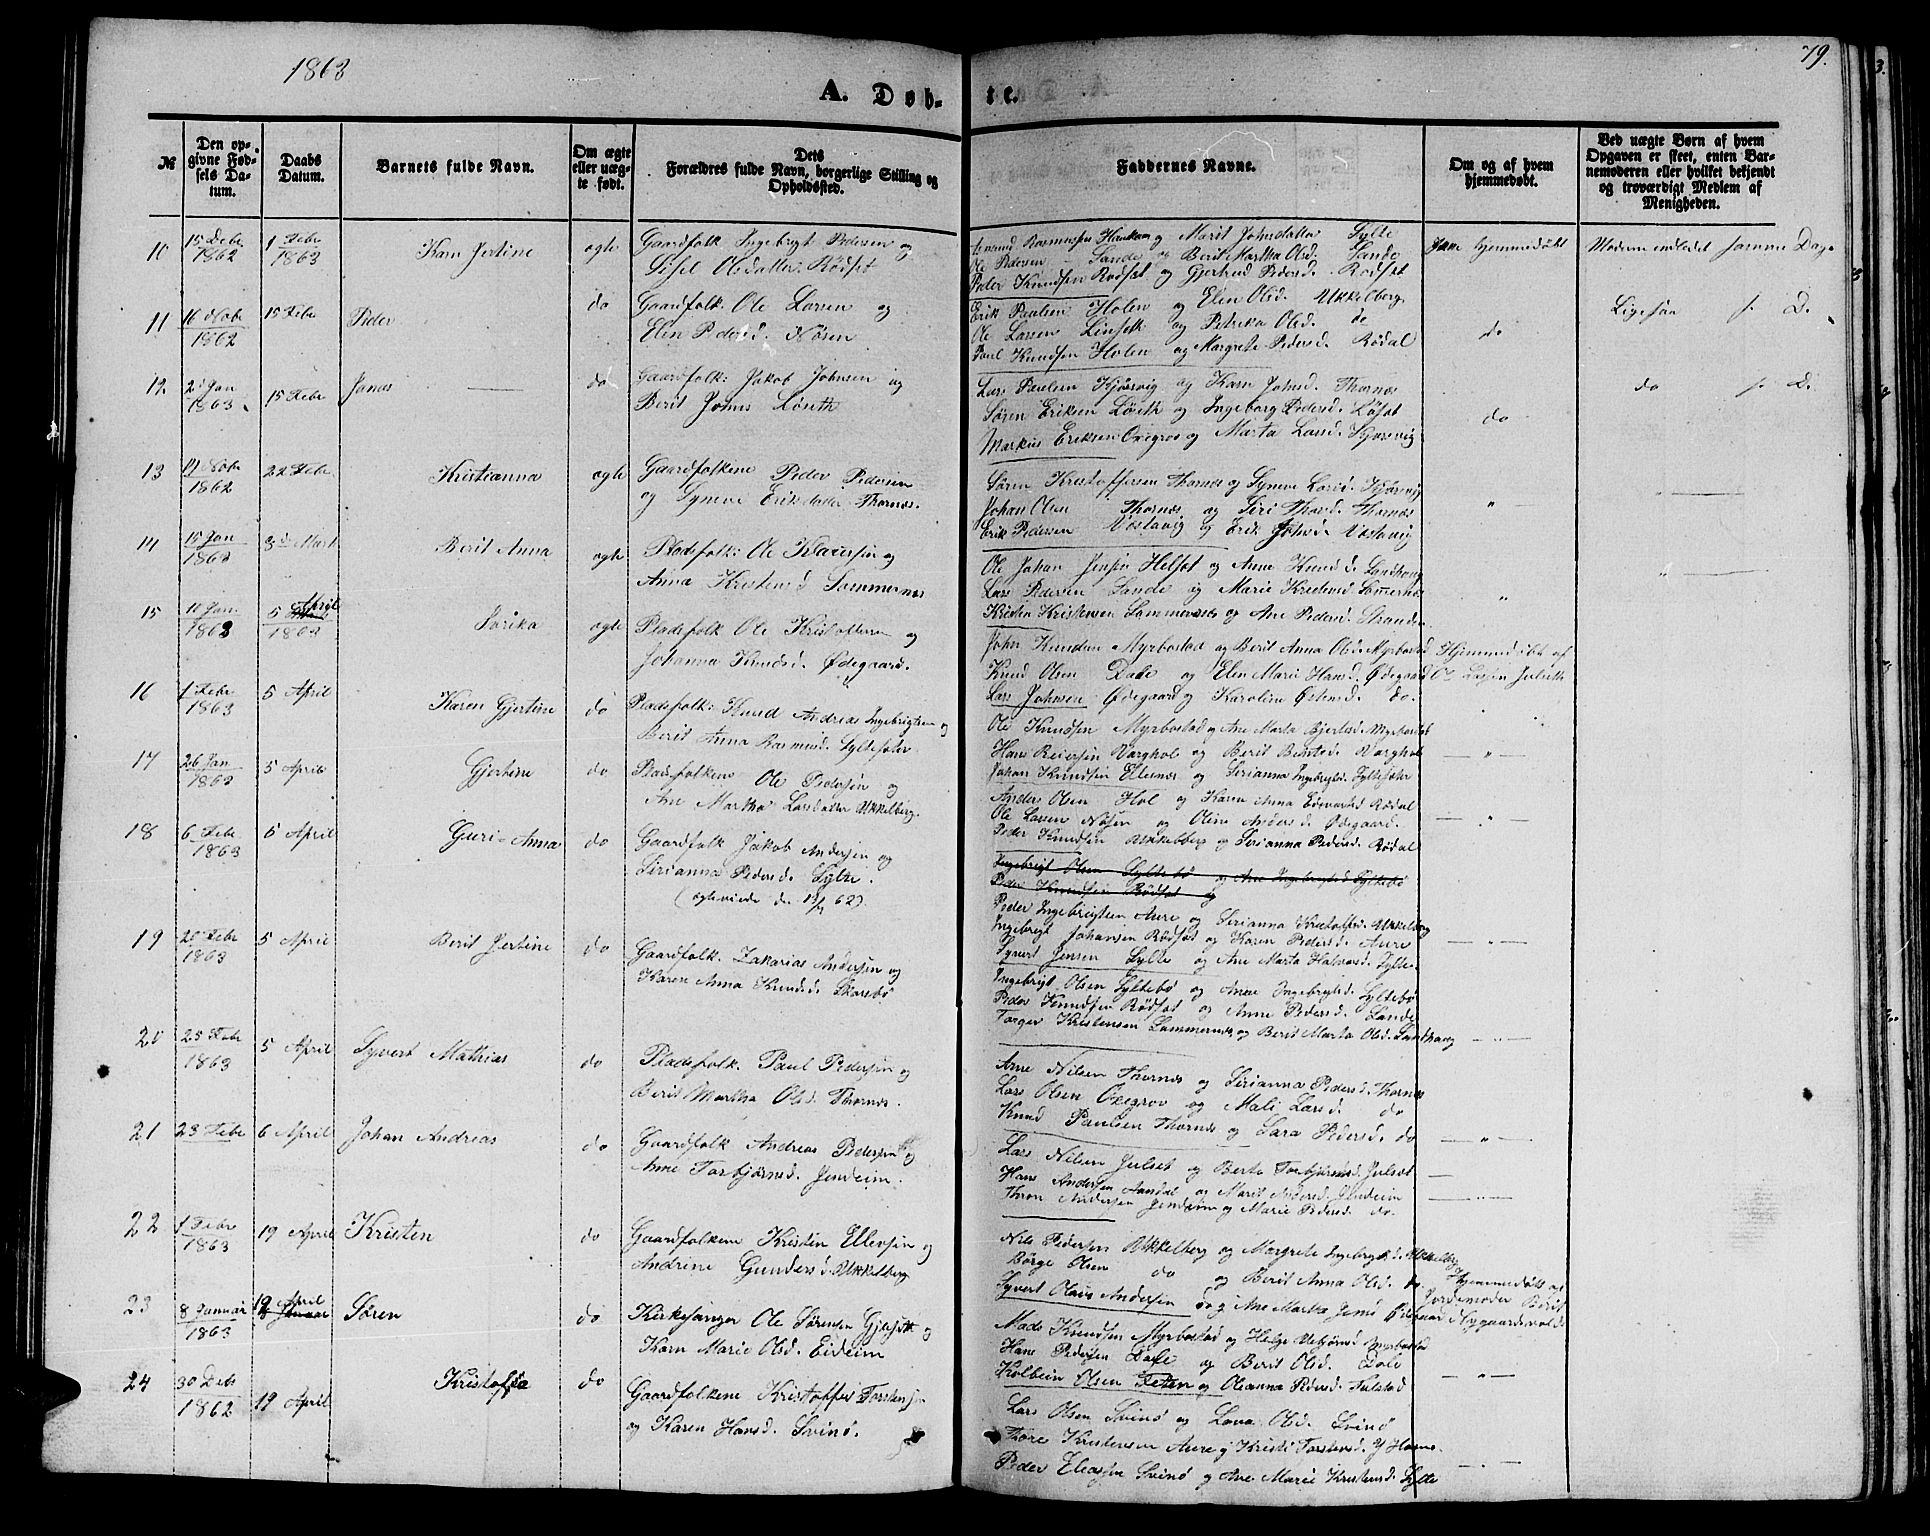 1863
79.
A. Døb-
te.
№
Den op-
givne Fød-
sels Da-
tum.
Daabs
Datum.
Barnets fulde Navn.
Om ægte
eller uæg-
te født.
Dets
Forældres fulde Navn, borgerlige Stilling og
Opholdssted.
Faddernes Navne.
Om og af hvem
hjemmedøbt.
Ved uægte Børn af hvem
Opgaven er skeet, enten Bar-
nemoderen eller hvilket bekjendt
og troværdigt Medlem af
Menigheden.
10 15 Debr 1862 1 Febr 1863 Karn Jertine ægte Gaardfolk Ingebrigt Pedersen og
Sisel Olsdatter Rødsæt
Rasmussen og Marit Johnsdatter Sylte
Ole Pedersen Sande og Berit Martha Olsd. Sande
Peder Knudsen Rødsæt og Gjertrud Peders. Rødsæt
hjemmedøbt
Moderen indledet samme Dag
11 16 Nobr 1862 15 Febr Peder do Gaardfolk Ole Larsen og
Elen Pedersd. Nøsen
Erik Paulsen Holen og Elen Olsd. Ukkelberg
Ole Larsen Linseth og Petrika Olsd. do
Paul Knudsen Holen og Margrete Pedersd. Rødal
do
Ligesaa s. D.
12. 2 Jan 1863 15 Febr Jonas do Gaardfolk: Jakob Johnsen og
Berit Johns Løseth
Lars Paulsen Kjørsvig og Karn Johnsd. Thornes
Søren Eriksen Løseth og Ingeborg Pedersd. Løset
Markus Eriksen Oregrov og Marta Larsd. Kjørsvig
do
do s. D.
13 11 Nobr 1862 22 Febr Kristianna ægte Gaardfolkene Peder Pedersen
og Synnve Eriksdatter Thornæs.
Søren Kristoffersen Thornes og Synnve Larsd. Kjørsvig
Johan Olsen Thornæs og Siri Thorsd. Thornæs
Erik Pedersen Vestavig og Erik Johnsd. Vestavig
"
"
14 15 Jan 1863 3 Mart Berit Anna ægte Pladsfolk: Ole Klausen og
Anna Kristensd Sammernes
Ole Johan Jensen Helset og Anne Knudsd. Sandhoug
Lars Pedersen Sande og Marie Kristensd. Samernes
Kristen Kristensen Sammernæs og Ane Pedersd. Stranden
"
"
15 11 Jan 1863 5 April 1863 Serika ægte Pladsfolk Ole Kristoffersen og
Johanna Knudsd. Ødegaard.
John Knudsen Myrbostad og Berit Anna Olsd. Myrbostad
Knud Olsen Dale og Elen Marie Hansd. Ødegaard
Lars Johnsen Ødegaard og Karoline Østensd. do.
Hjemmedøbt af
Ole Larsen Julseth
16 1 Febr 1863 5 April Karen Gjertine do Pladsfolk: Knud Andreas Ingebrigtsen og
Berit Anna Rasmusd. Syltesæter
Ole Knudsen Myrbostad og Ane Marta Bjertesd. Myrbostad
Hans Reiersen Varghol og Berit Bentsd. Varghol
Johan Knudsen Ellesnæs og Serianna Ingebrigtsd. Syltesæter
"
17 26 Jan 1863 5 April Gjertine do Pladsfolkene Ole Pedersen og
Ane Martha Larsdatter Ukkelberg.
Anders Olsen Hol og Karen Anna Edvardsd Rødal
Ole Larsen Nøsen og Oline Andersd. Ødegaard.
Peder Knudsen Ukkelberg og Serianna Pedersd. Rødal
"
18 6 Febr 1863 5 April Guri-Anna do Gaardfolk Jakob Andersen og
Serianna Pedersd. Sylte.
Ingebrigt Olsen Syltebø og Ane Ingebrigtsd Syltebø
Peder Knudsen Rødsæt og
Peder Ingebrigtsen Aure og Serianna Kristoffersd. Ukkelberg
Ingebrigt Johansen Rødsæt og Karen Pedersd. Aure
Syvert Jensen Sylte og Ane Marta Halvorsd. Sylte.
"
19 20 Febr 1863 5 April Berit Jertine do Gaardfolk. Zakarias Andersen og
Karen Anna Knudsd. Skarsbø
Ingebrigt Olsen Syltebø og Anne Ingebrigtsd. Syltebø
Peder Knudsen Rødset og Anne Pedersd. Sande
Torger Kristensen Sammernes og Berit Marta Olsd. Sandhoug
"
20 25 Febr 1863 5 April Syvert Mathias do Pladsfolk. Paul Pedersen og
Berit Martha Olsd. Thornes.
Arne Nilsen Thornes og Serianna Pedersd. Thornes
Lars Olsen Oregrov og Mali Larsd. do
Knud Paulsen Thornes og Sara Pedersd. do
"
21 23 Febr 6 April Johan Andreas do Gaardfolk Andreas Pedersen og
Anne Torbjørnsd. Jendeim.
Lars Nilsen Julset og Berte Torbjørnsd. Julset
Hans Andersen Aandal og Marit Andersd. Jendeim
Thron Andersen Jendeim og Marie Pedersd. do.
"
22 1 Febr 1863 19 April Kristen do Gaardfolkene Kristen Ellevsen og
Andrine Gundersd. Ukkelberg
Nils Pedersen Ukkelberg og Margrete Ingebrigtsd. Ukkelberg
Børge Olsen do og Berit Anna Olsd. do.
Syvert Olaus Andersen do og Ane Martha Jensd Ødegaard
Hjemmedøbt af
Jordemoder Berit
Nygaardsvold.
23 8 Januar 1863 19 April Søren do Kirkesanger Ole Sørensen Gjelseth og
Karn Marie Olsd. Eideim
Mads Knudsen Myrbostad og Helge Vebjørnsd. Myrbostad
Hans Pedersen Dale og Berit Olsd. Dale
Kolbein Olsen Teten og Oleanna Pedersd. Tulstad
"
24 30 Debr 1862 19 April Kristoffa do Gaardfolkene Kristoffer Torstensen
og Karen Hansd. Svinø.
Lars Olsen Svinø og Lava Olsd. Svinø
Thore Kristensen Aure og Kristi Torstensd. Y Harnes.
Peder Eliassen Svinø og Ane Marie Kristensd. Sylte
"